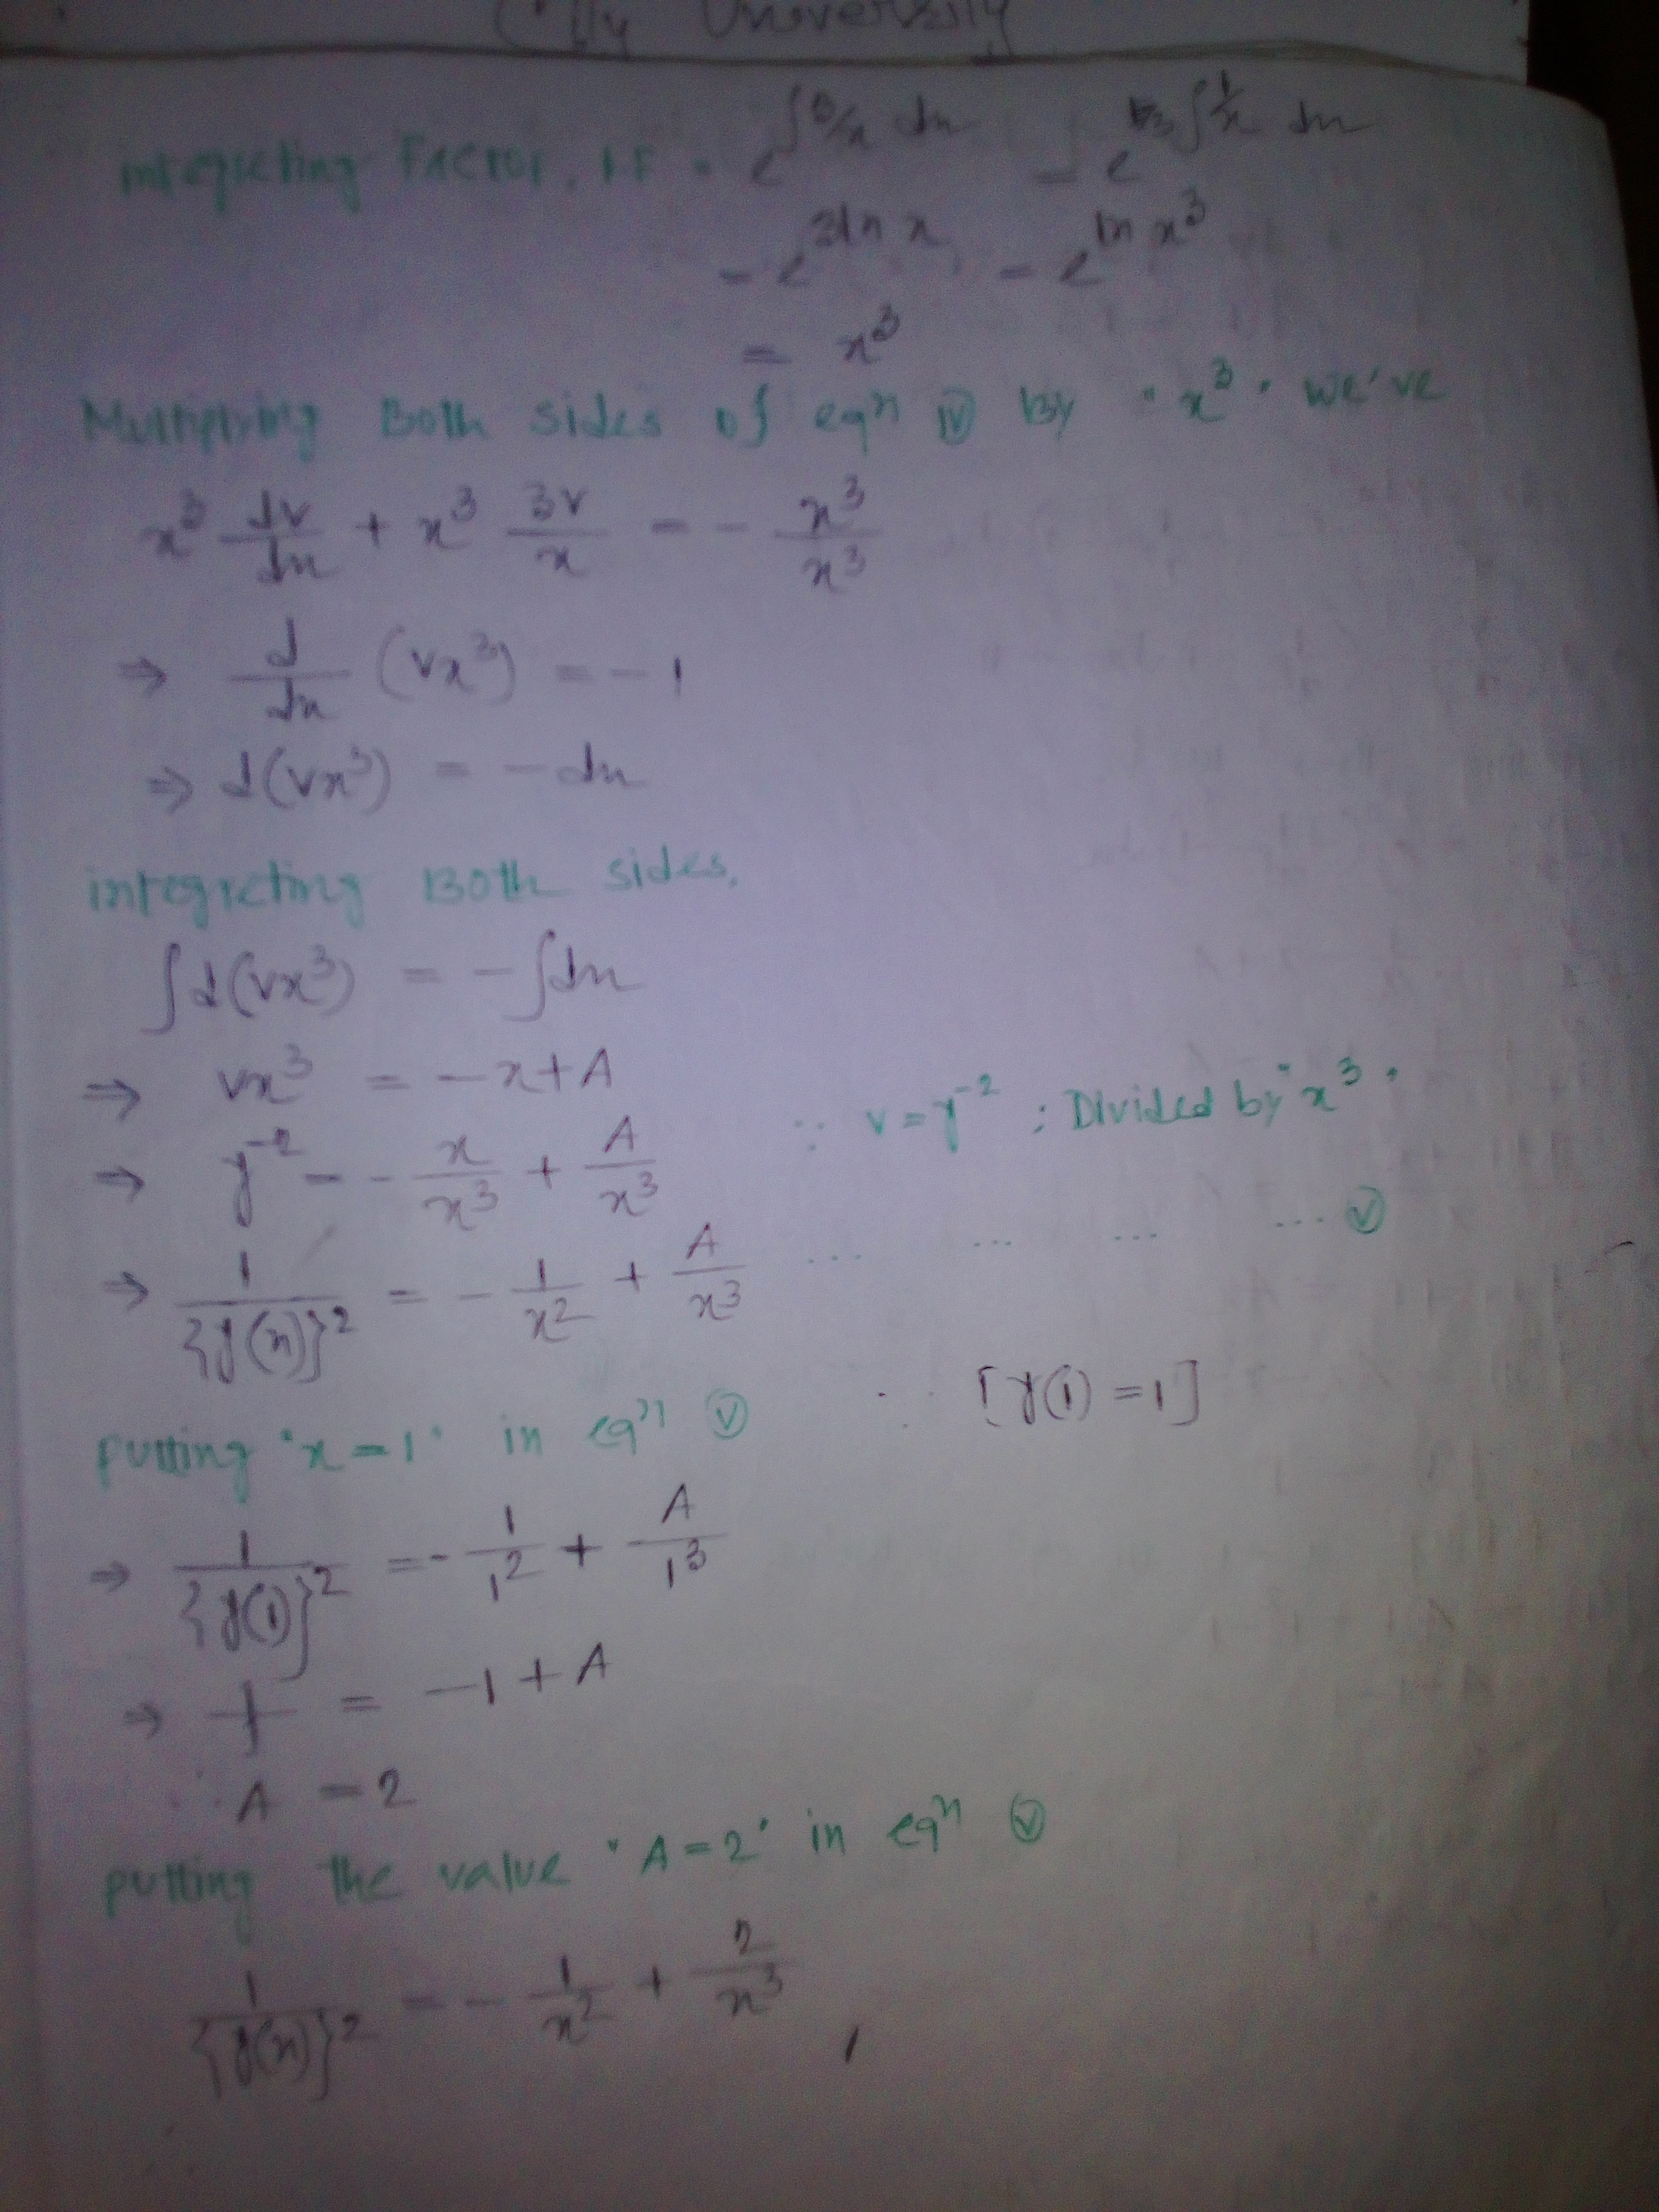 City University
integrating Factor, I.F = e^{∫3/x dx} = e^{3∫1/x dx}
= e^{3ln x} = e^{ln x^3}
= x^3
Multiplying Both sides of eqn (iv) by "x^3" we've
x^3 dv/dx + x^3 3v/x = - x^3/x^3
⇒ d/dx (vx^3) = -1
⇒ d(vx^3) = -dx
integrating Both sides,
∫d(vx^3) = -∫dx
⇒ vx^3 = -x+A
⇒ y^-2 = - x/x^3 + A/x^3 ∵ v=y^-2 ; Divided by "x^3"
⇒ 1/{y(x)}^2 = - 1/x^2 + A/x^3 ... ... ... ... (v)
putting "x=1" in eqn (v) ∵ [y(1)=1]
⇒ 1/{y(1)}^2 = - 1/1^2 + A/1^3
⇒ 1/1 = -1+A
∴ A = 2
putting the value "A=2" in eqn (v)
1/{y(x)}^2 = - 1/x^2 + 2/x^3